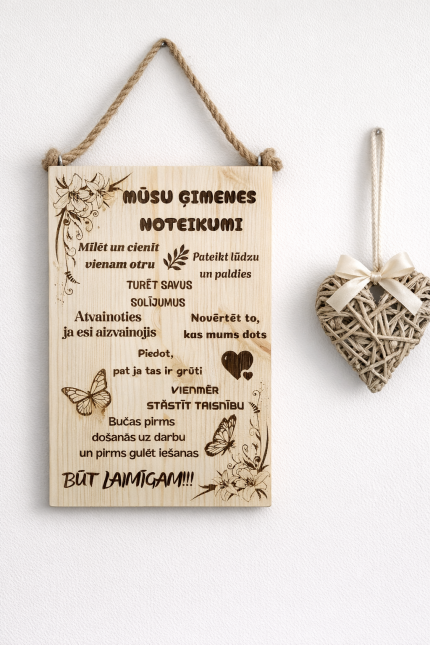 MŪSU ĢIMENES
NOTEIKUMI
Mīlēt un cienīt
vienam otru
Pateikt lūdzu
un paldies
TURĒT SAVUS
SOLĪJUMUS
Atvainoties
ja esi aizvainojis
Novērtēt to,
kas mums dots
Piedot,
pat ja tas ir grūti
VIENMĒR
STĀSTĪT TAISNĪBU
Bučas pirms
došanās uz darbu
un pirms gulēt iešanas
BŪT LAIMĪGAM!!!